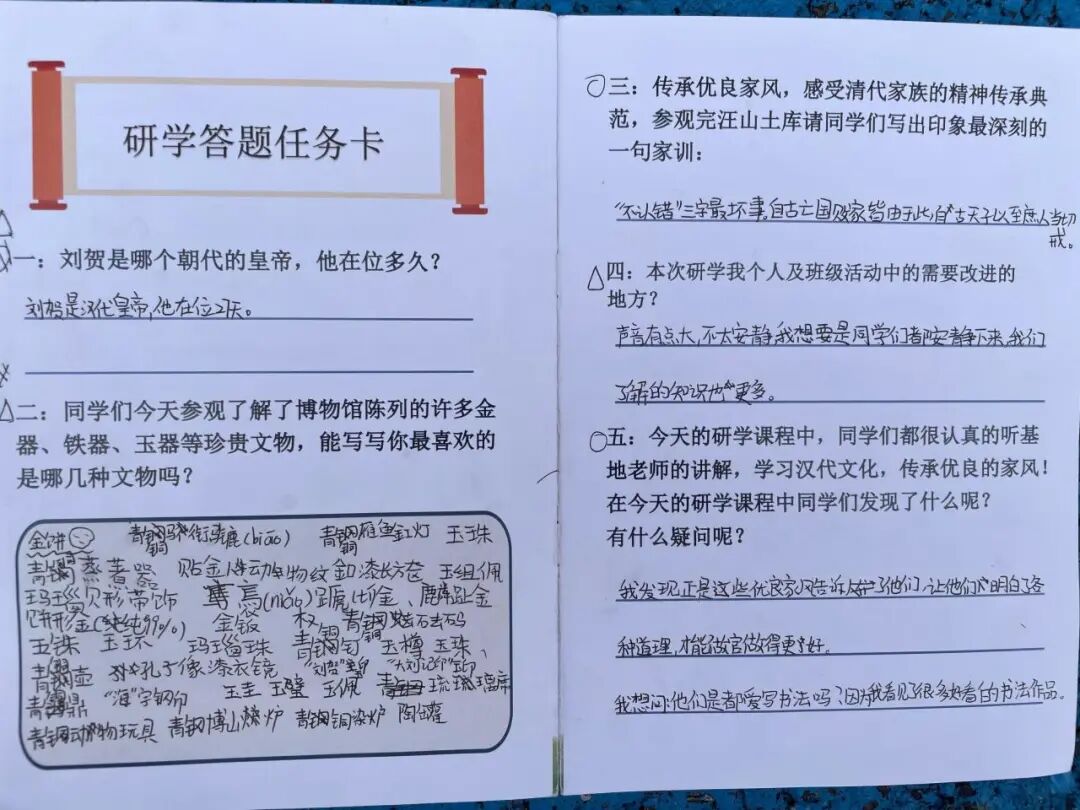 研学答题任务卡
一：刘贺是哪个朝代的皇帝，他在位多久？
刘贺是汉代皇帝，他在位27天。
二：同学们今天参观了解了博物馆陈列的许多金
器、铁器、玉器等珍贵文物，能写写你最喜欢的
是哪几种文物吗？
金饼 (biāo) 雁鱼缸灯 玉珠
蒸煮器 贴金 动物纹釦漆长方奁 玉组佩
贝形带饰 (niǎo)
金板 权
玉环 玛瑙珠 玉樽 玉珠、
孔子像漆衣镜 “刘贺”玉印 “大刘记印”玉印
鼎 “海”字铜印 玉圭 玉璧 玉佩 琉璃席
动物玩具 博山 炉 炉 陶罐
三：传承优良家风，感受清代家族的精神传承典
范，参观完汪山土库请同学们写出印象最深刻的
一句家训：
“不认错”三字最坏事。自古亡国败家皆由于此，自古天子以至庶人当切
戒。
四：本次研学我个人及班级活动中的需要改进的
地方？
声音有点大，不太安静，我想要是同学们都安静下来，我们
了解的知识也更多。
五：今天的研学课程中，同学们都很认真的听基
地老师的讲解，学习汉代文化，传承优良的家风！
在今天的研学课程中同学们发现了什么呢？
有什么疑问呢？
我发现正是这些优良家风告诉 了他们，让他们明白了各
种道理，才能做官做得更好。
我想问：他们是都爱写书法吗？因为我看见了很多好看的书法作品。